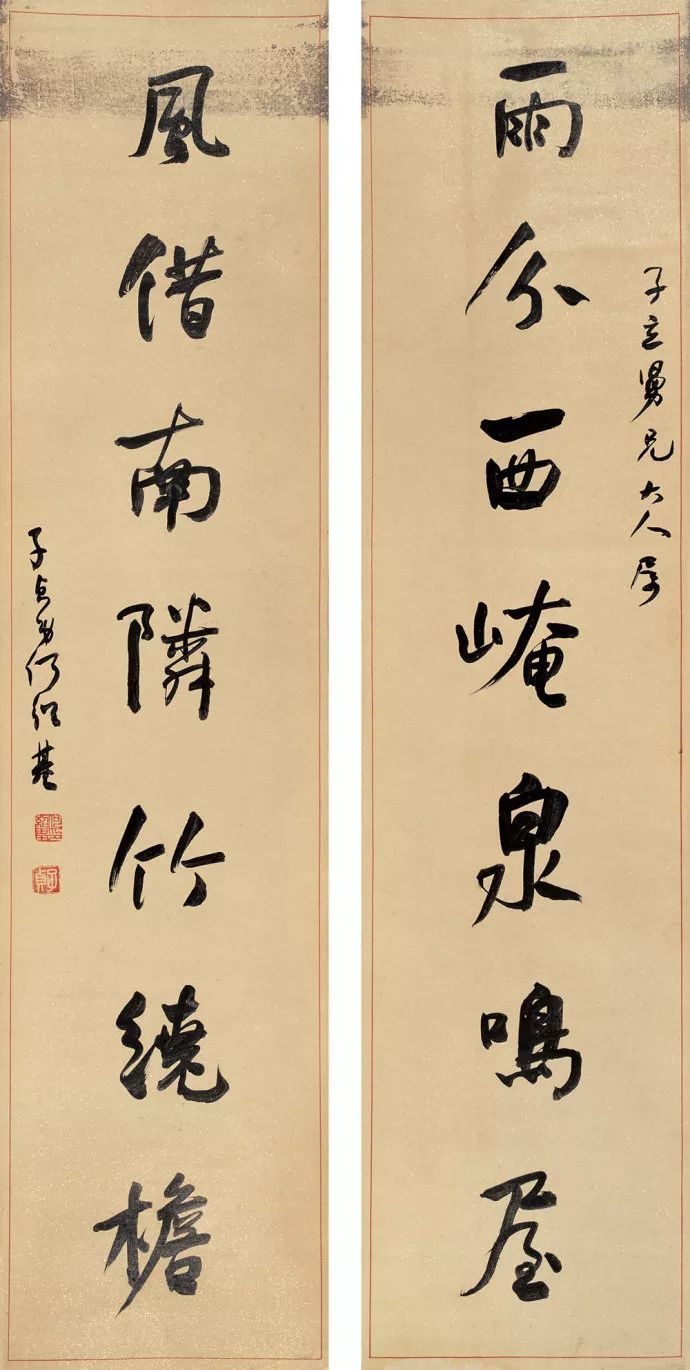 子立舅兄大人属
雨分西崦泉鳴屋
風借南隣竹繞檐
子貞弟何紹基